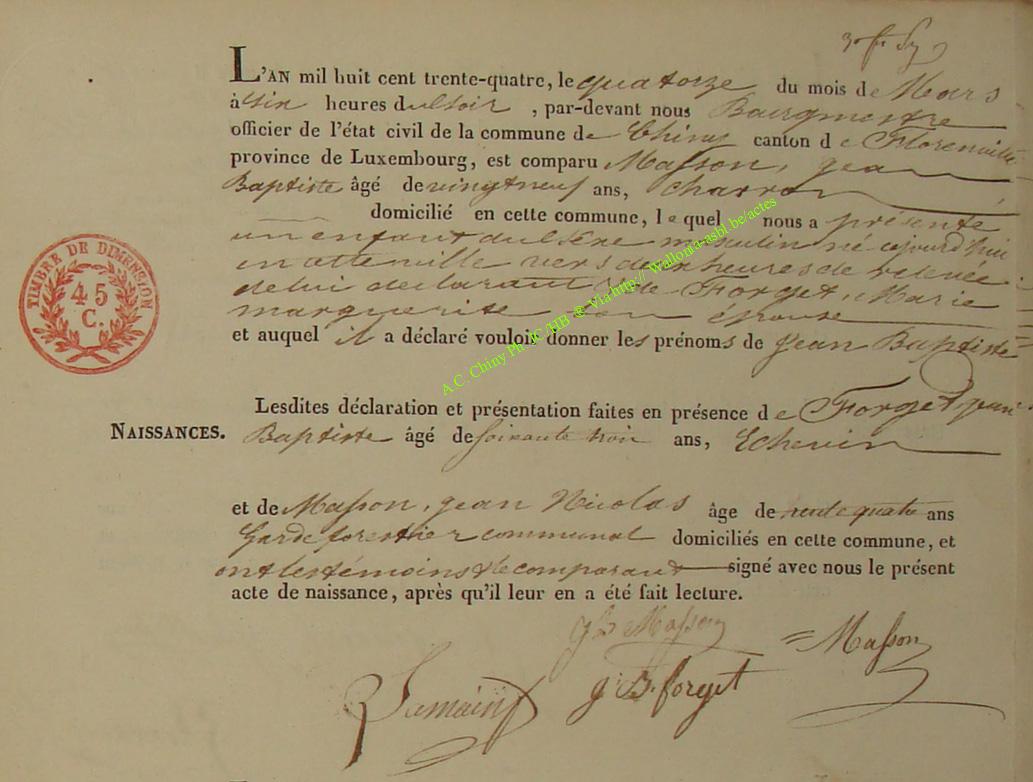 L'AN mil huit cent trente-quatre, le quatorze du mois de Mars
à six heures du soir, par-devant nous Bourgmestre
officier de l'état civil de la commune de Chiny canton de Florenville
province de Luxembourg, est comparu Masson, jean
Baptiste âgé de vingt neuf ans, charron
domicilié en cette commune, lequel nous a présenté
un enfant du sexe masculin né ajourd'hui
en cette ville vers deux heures de relevée
de lui déclarant & de Forget, Marie
marguerite son épouse
et auquel il a déclaré vouloir donner les prénoms de Jean Baptiste
TIMBRE DE DIMENSION
45
C.
A.C. Chiny Ph JC HB @ Via http:// Wallonia-asbl.be/actes
NAISSANCES.
Lesdites déclaration et présentation faites en présence de Forget, jean
Baptiste âgé de soixante trois ans, Echevin
et de Masson, jean Nicolas âge de trente quatre ans
Garde forestier communal domiciliés en cette commune, et
ont les témoins & le comparant signé avec nous le présent
acte de naissance, après qu'il leur en a été fait lecture.
Masson
Masson
J. B. forget